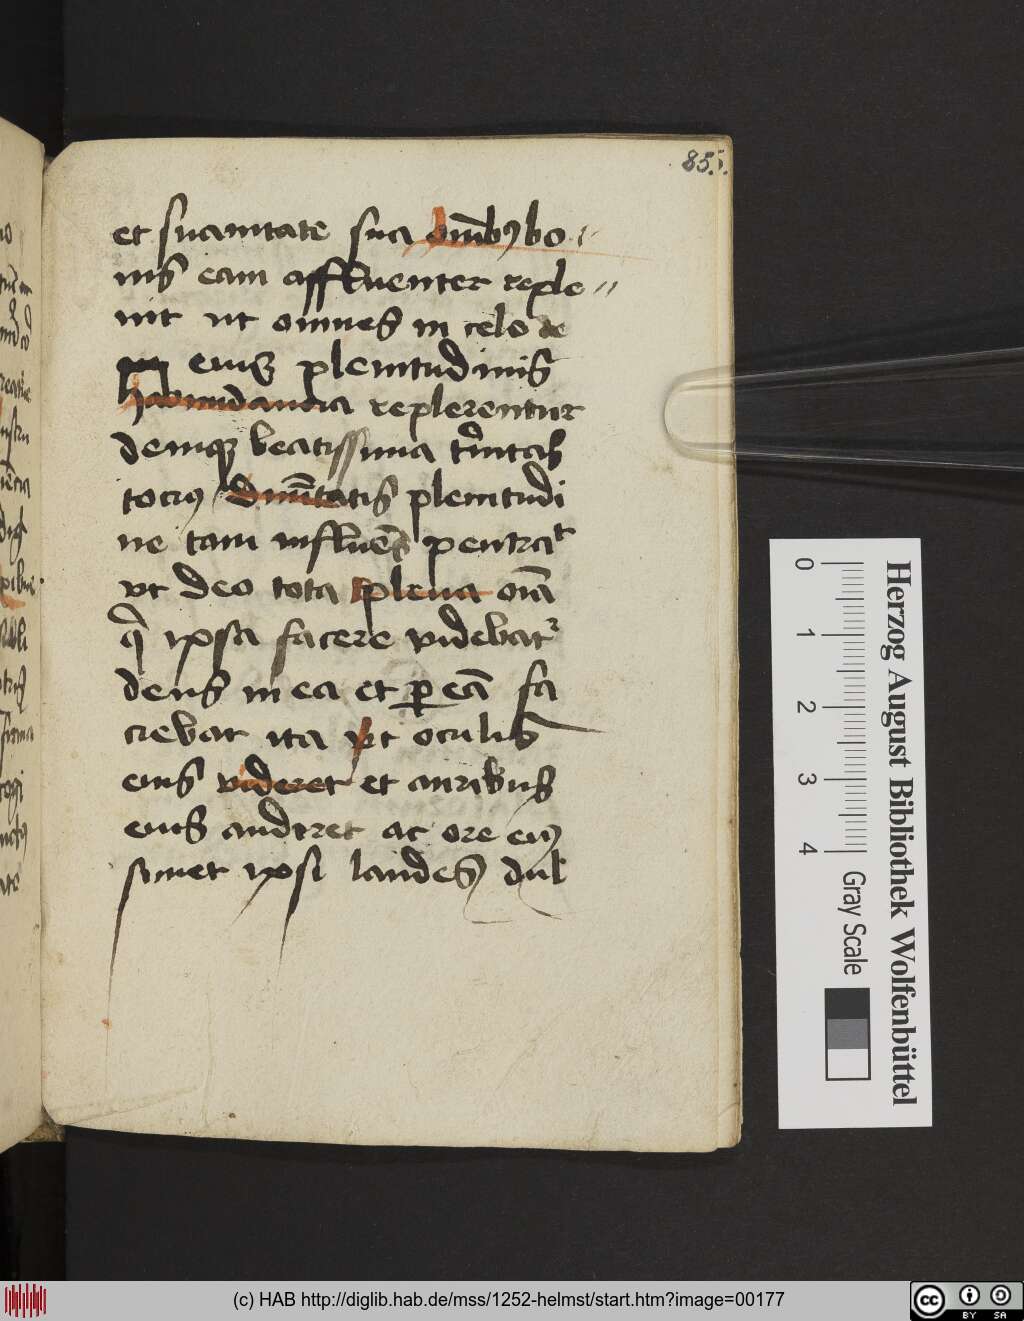 85.
et suauitate sua omībꝫ bo
nis eam affluenter reple
uit ut omnes in celo de
eius plenitudinis
habundancia replerentur
deniqꝫ beatissima t'nitas
tociꝰ diuītatis plenitudi
ne tam influēs penetrat
vt deo tota plena oīa
q̄ ipsa facere videbatᷣ
deus in ea et ꝑ eā fa
ciebat ita vt oculis
eius videret et auribus
eius audiret ac ore eiꝰ
simet ipsi laudes dul
Herzog August Bibliothek Wolfenbüttel
0 1 2 3 4 Gray Scale
(c) HAB http://diglib.hab.de/mss/1252-helmst/start.htm?image=00177
cc BY SA